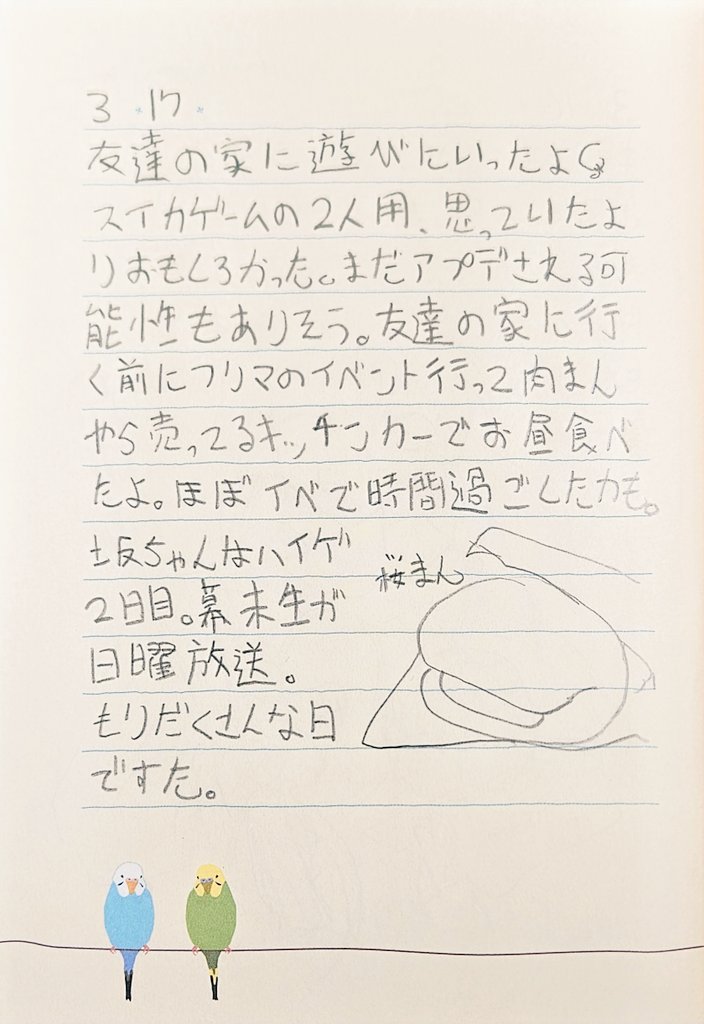 3・17
友達の家に遊びにいったよ
スイカゲームの2人用、思っていたよ
りおもしろかった。まだアプデされる可
能性もありそう。友達の家に行
く前にフリマのイベント行って肉まん
やら売ってるキッチンカーでお昼食べ
たよ。ほぼイベで時間過ごしたかも。
坂ちゃんはハイゲ
桜まん
2日目。幕末生が
日曜放送。
もりだくさんな日
ですた。